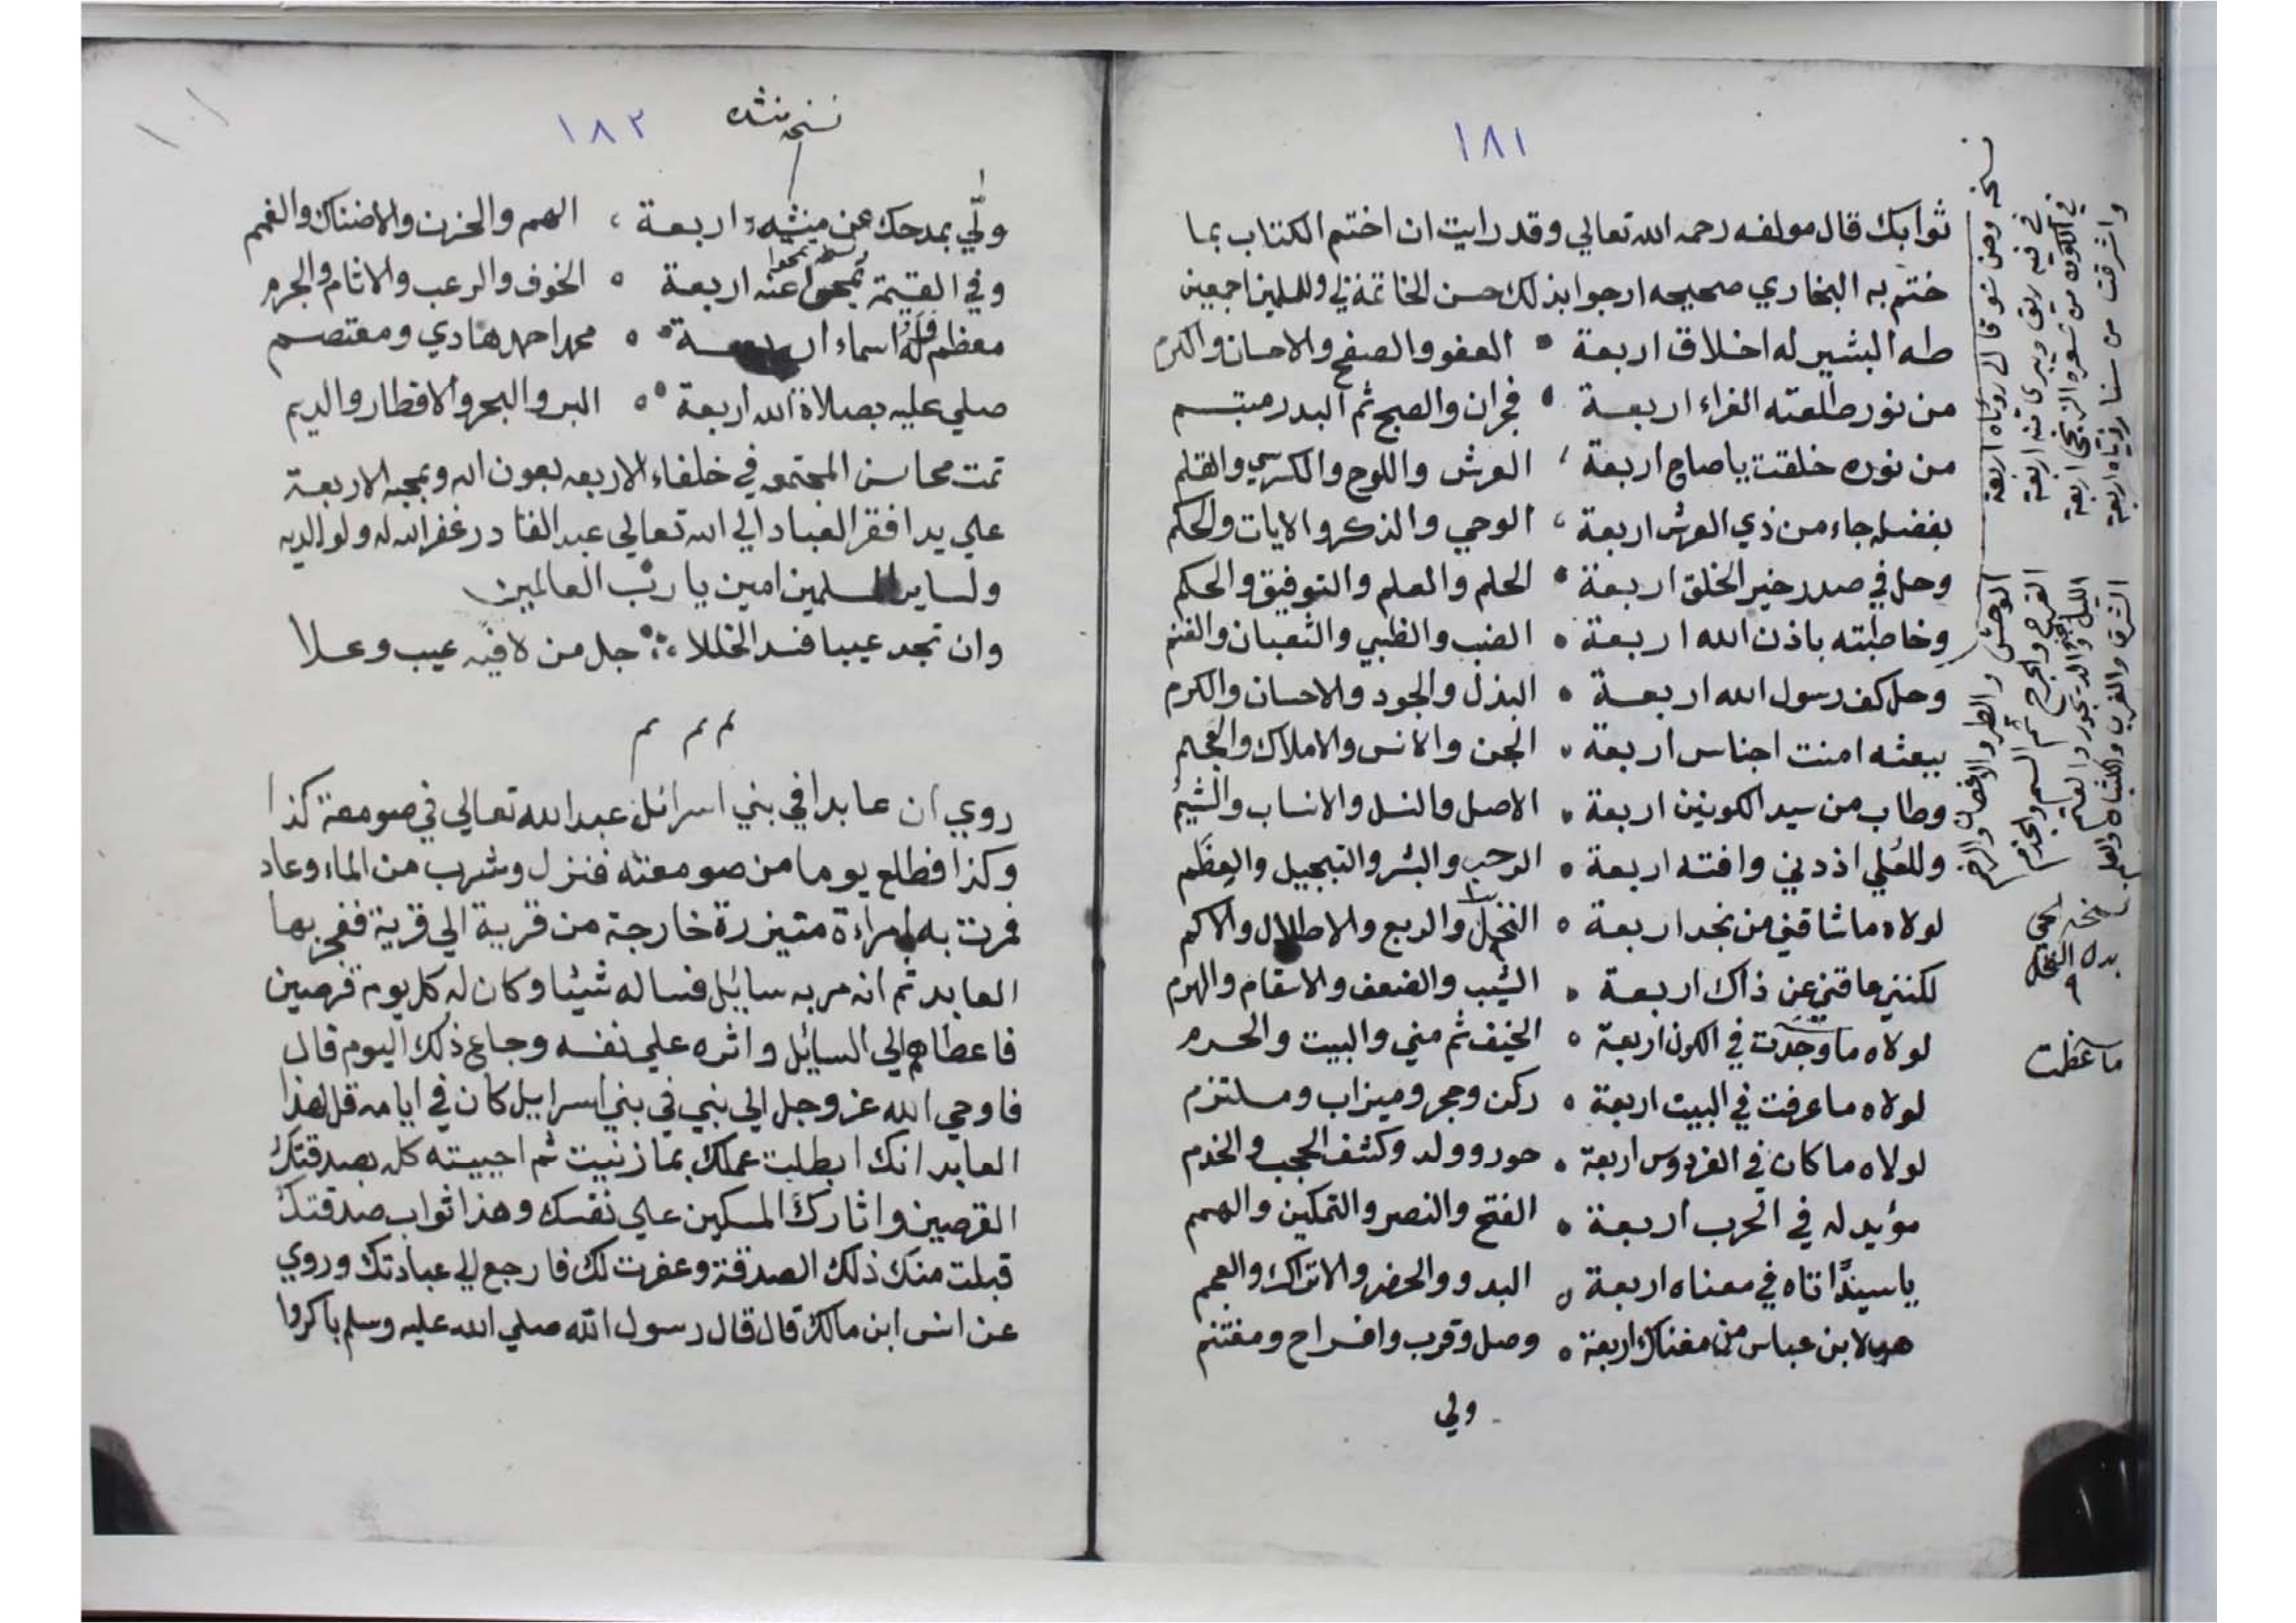 ١٨١
ثوابك قال مولفه رحمه الله تعالي وقد رايت ان اختم الكتاب بما
ختم به البخاري صحيحه ارجوا بذلك حسن الخاتمة لي وللمسلمين اجمعين
طه البشير له اخلاق اربعة العفو والصفح والاحسان والكرم
من نور طلعته الغراء اربعة فجران والصبح ثم البدر مبتسم
من نوره خلقت ياصاح اربعة العرش واللوح والكرسي والقلم
بفضله جاء من ذي العرش اربعة الوحي والذكر والايات والحكم
وحل في صدر خير الخلق اربعة الحلم والعلم والتوفيق والحكم
وخاطبته باذن الله اربعة الضب والظبي والثعبان والغنم
وحل كف رسول الله اربعة البذل والجود والاحسان والكرم
ببعثه امنت اجناس اربعة الجن والانس والاملاك والعجم
وطاب من سيد الكونين اربعة الاصل والنسل والانساب والشيم
وللعلي اذ دني وافته اربعة الرحب والبشر والتبجيل والعظم
لولاه ما شاقني من نجد اربعة النخل والربع والاطلال والاكم
لكنني عاقني عن ذاك اربعة الشيب والضعف والاسقام والهرم
لولاه ما وجدت في الكون اربعة الخيف ثم مني والبيت والحرم
لولاه ما عرفت في البيت اربعة ركن وحجر وميزاب وملتزم
لولاه ما كان في الفردوس اربعة حور وولد وكشف الحجب والخدم
مؤيد له في الحرب اربعة الفتح والنصر والتمكين والهمم
ياسيدا تاه في معناه اربعة البدو والحضر والاتراك والعجم
هب لابن عباس من مغناك اربعة وصل وقرب وافراح ومغتنم
ولي
نسخه وحن شوقا الى رؤياه اربعة الوحش والطير والاغصان
في فيه ريق ويبرى منه اربعة القرح والجرح ثم السم والجذم
في الكون من شعره الزنجي اربعة الليل والديجور والعتم
واشرقت من سنا رؤياه اربعة الشرق والغرب
نسخه
بدل النخل
ما عظت
١٨٢
نسخه منشده
ولي بمدحك عن منشيه اربعة الهم والحزن والاضناك والغمم
وفي القيمة تمحوا عنه اربعة الخوف والرعب والاثام والجرم
معظم فله اسماء اربعة محمد احمد هادي ومعتصم
صلي عليه بصلاة الله اربعة البر والبحر والاقطار والديم
تمت محاسن المجتمعه في خلفاء الاربعه بعون الله وبمحبه الاربعة
علي يد افقر العباد الي الله تعالي عبد القادر غفر الله له ولوالديه
ولساير المسلمين امين يا رب العالمين
وان تجد عيبا فسد الخللا جل من لا فيه عيب وعلا
م م م
روي ان عابدا في بني اسرائل عبد الله تعالي في صومعة كذا
وكذا فطلع يوما من صومعته فنزل وشرب من الماء وعاد
فمرت به امراءة متيزرة خارجة من قرية الي قرية ففجر بها
العابد ثم انه مر به سايل فساله شيئا وكان له كل يوم قرصين
فاعطاهم الي السايل واثره علي نفسه وجاع ذلك اليوم قال
فاوحي الله عز وجل الي نبي في بني اسرايل كان في ايامه قل لهذا
العابد انك ابطلت عملك بما زنيت ثم احييته كله بصدقتك
القرصين واثارك المسكين علي نفسك وهذا ثواب صدقتك
قبلت منك ذلك الصدقة وغفرت لك فارجع الي عبادتك وروي
عن انس ابن مالك قال قال رسول الله صلي الله عليه وسلم باكروا